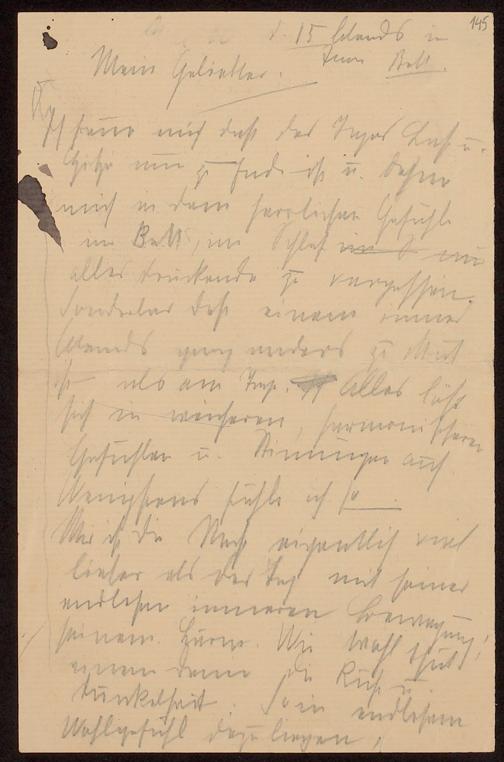 145
d. 15 Abends im
Mein Geliebter. Bett.
Ich freue mich daß des Tages Last u.
Hitze nun zu Ende ist u. dehne
mich in dem herrlichen Gefühl
im Bett, im Schlaf nun
alles drückende zu vergessen.
Sonderbar daß einem immer
Abends ganz anders zu Mut
ist als am Tage. Alles löst
sich in weicheren, harmonischeren
Gefühlen u. Stimmungen auf
Wenigstens fühle ich so
Mir ist die Nacht eigentlich viel
lieber als der Tag mit seiner
endlosen inneren Bewegung,
seinem Lärm. Wie wohl thut
einem dann die Ruhe u.
Dunkelheit. So in endlosem
Wohlgefühl dazuliegen,